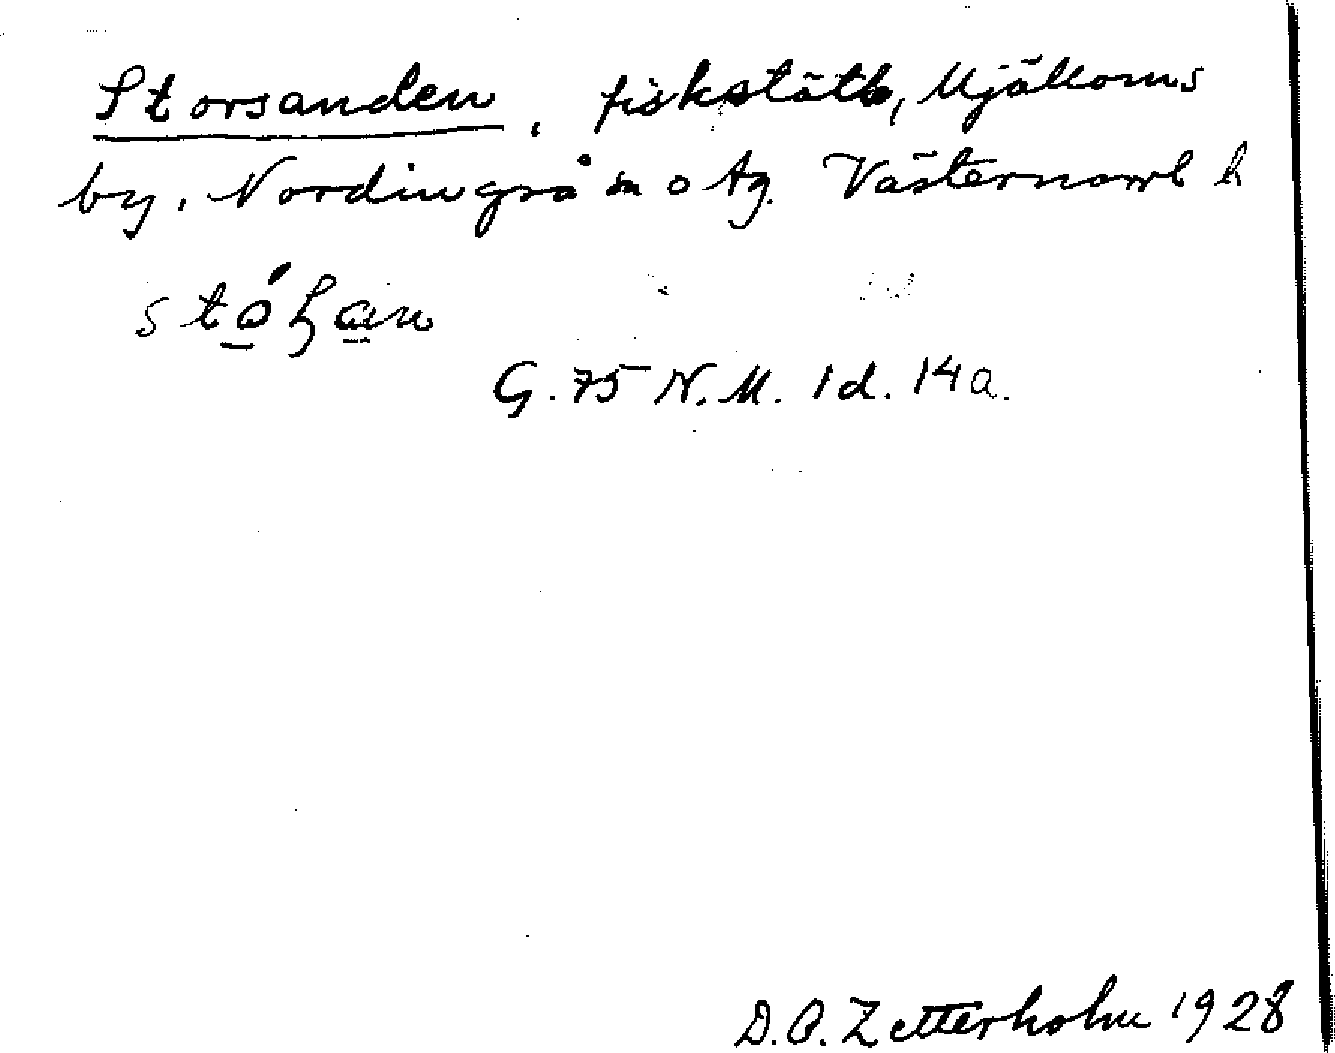 Storsanden, fiskställe, Mjälloms
by, Nordingrå sn o tg. Västernorrl l
G. 75 N.M. 1d. 14a.
D.O. Zetterholm 1928